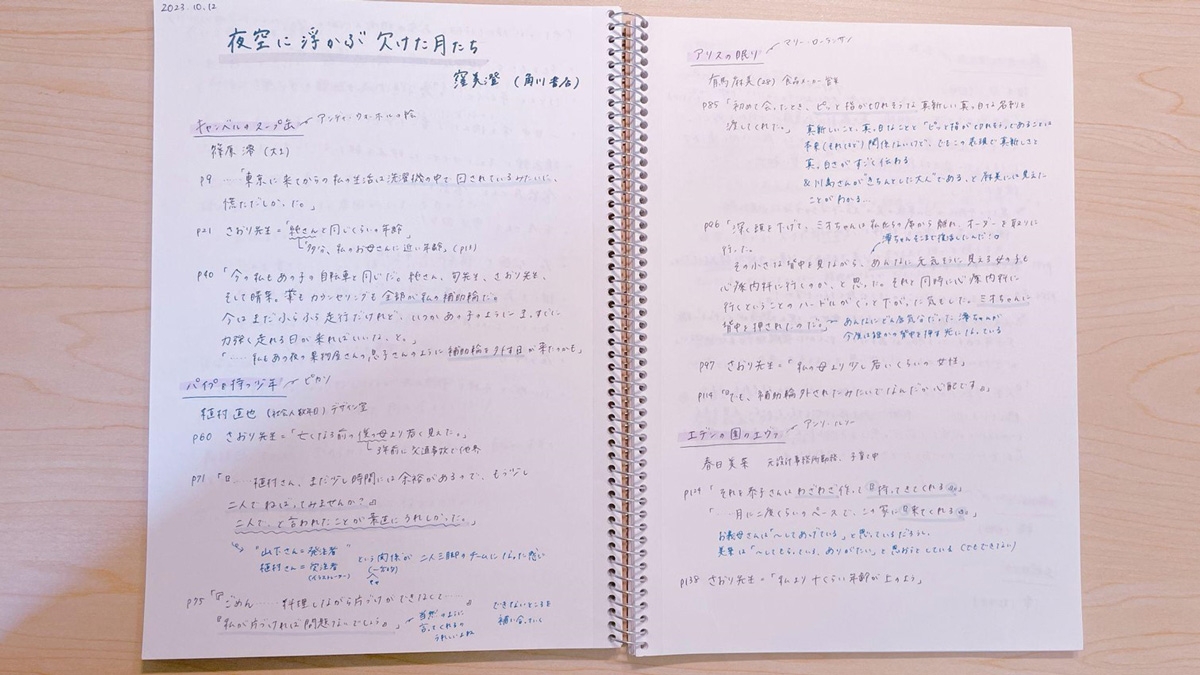 2023.10.12
夜空に浮かぶ欠けた月たち
窪美澄（角川書店）
キャンベルのスープ缶 アンディ・ウォーホルの絵
篠原澪（大1）
p9 …「東京に来てからの私の生活は洗濯機の中で回されているみたいに、
慌ただしかった。」
p21 さおり先生=「純さんと同じくらいの年齢」
「多分、私のお母さんに近い年齢」(p11)
p40 「今の私もあの子の自転車と同じだ。純さん、旬先生、さおり先生、
そして晴菜。薬もカウンセリングも全部が私の補助輪だ。
今はまだふらふら走行だけれど、いつかあの子のようにまっすぐに
力強く走れる日が来ればいいな、と。」
「……私もあの夜の果物屋さんの息子さんのように補助輪を外す日が来たのかも」
パイプを持つ少年 ピカソ
植村直也（社会人数年目）デザイン室
p60 さおり先生=「亡くなる前の僕の母より若く見えた。」
3年前に交通事故で他界
p71 「『……植村さん、まだ少し時間には余裕があるので、もう少し
二人でねばってみませんか？』
二人で、と言われたことが素直にうれしかった。」
"山下さん=発注者
植村さん=受注者 という関係が 二人三脚のチームになった感じ
(イラストレーター)
p75 「『ごめん……料理しながら片づけができなくて……』
『私が片づければ問題ないでしょう。』
当然のように
言ってくれるの
うれしいよね
できないところを
補い合っていく
アリスの眠り マリー・ローランサン
有馬麻美(28) 食品メーカー営業
p85 「初めて会ったとき、ピッと指が切れそうな真新しい真っ白な名刺を
渡してくれた。」
真新しいこと、真っ白なことと「ピッと指が切れそう」であることは
本来(それほど)関係ないけど、でもこの表現で真新しさと
真っ白さがすごく伝わる
&川島さんが"きちんとした大人"である、と麻美には見えた
ことがわかる…
p96 「深く頭を下げて、ミオちゃんは私たちの席から離れ、オーダーを取りに
行った。
澪ちゃんそこまで復活したんだ!
その小さな背中を見ながら、あんなに元気そうに見える女の子も
心療内科に行くのか、と思った。それと同時に心療内科に
行くということのハードルがぐっと下がった気もした。ミオちゃんに
背中を押されたのだ。」
あんなにどん底気分だった澪ちゃんが
今度は誰かの背中を押す光になっている
p97 さおり先生=「私の母より少し若いくらいの女性」
p114 「『でも、補助輪外されたみたいでなんだか心配です。』」
エデンの園のエヴァ アンリ・ルソー
春日美菜 元設計事務所勤務、子育て中
p129 「それを恭子さんはわざわざ作って持ってきてくれる。」
「……一月に二度くらいのペースで、この家に来てくれる。」
お義母さんは「〜してあげている」と思っているだろうし、
美菜は「〜してもらっている、ありがたい」と思おうとしている(でもできない)
p138 さおり先生=「私より十くらい年齢が上のよう」